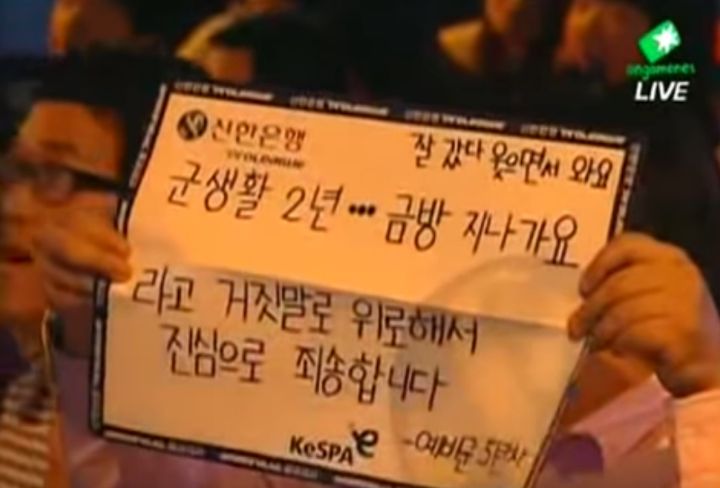 ongamenes
LIVE
신한은행
PROLEAGUE
잘 갔다 웃으면서 와요
군생활 2년… 금방 지나가요
라고 거짓말로 위로해서
진심으로 죄송합니다
KeSPA e